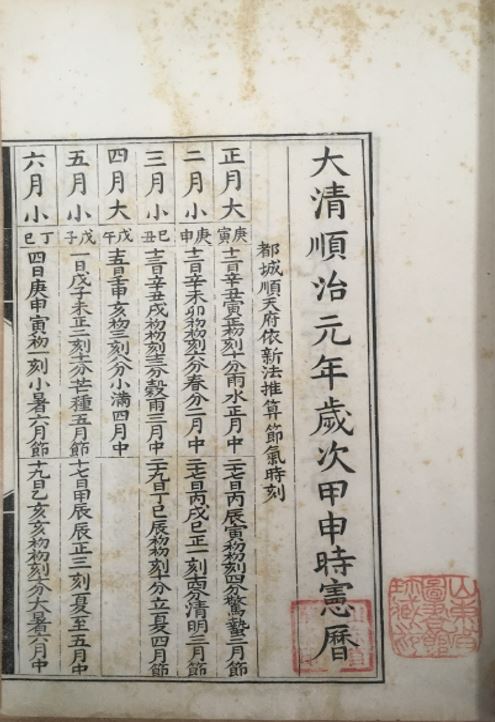 大清順治元年歲次甲申時憲曆
都城順天府依新法推算節氣時刻
正月大 庚寅 十二日辛丑寅正初刻十分雨水正月中 二十七日丙辰寅初初刻四分驚蟄二月節
二月小 庚申 十二日辛未卯初初刻六分春分二月中 二十七日丙戌巳正一刻十四分清明三月節
三月小 己丑 十三日辛丑戌初初刻十三分穀雨三月中 二十九日丁巳辰初初刻十分立夏四月節
四月大 戊午 十五日壬申亥初三刻八分小滿四月中
五月小 戊子 一日戊子未正二刻十分芒種五月節 十七日甲辰辰正三刻夏至五月中
六月小 丁巳 四日庚申寅初一刻小暑六月節 十九日乙亥亥初初刻十分大暑六月中
山東省圖書館珍藏印